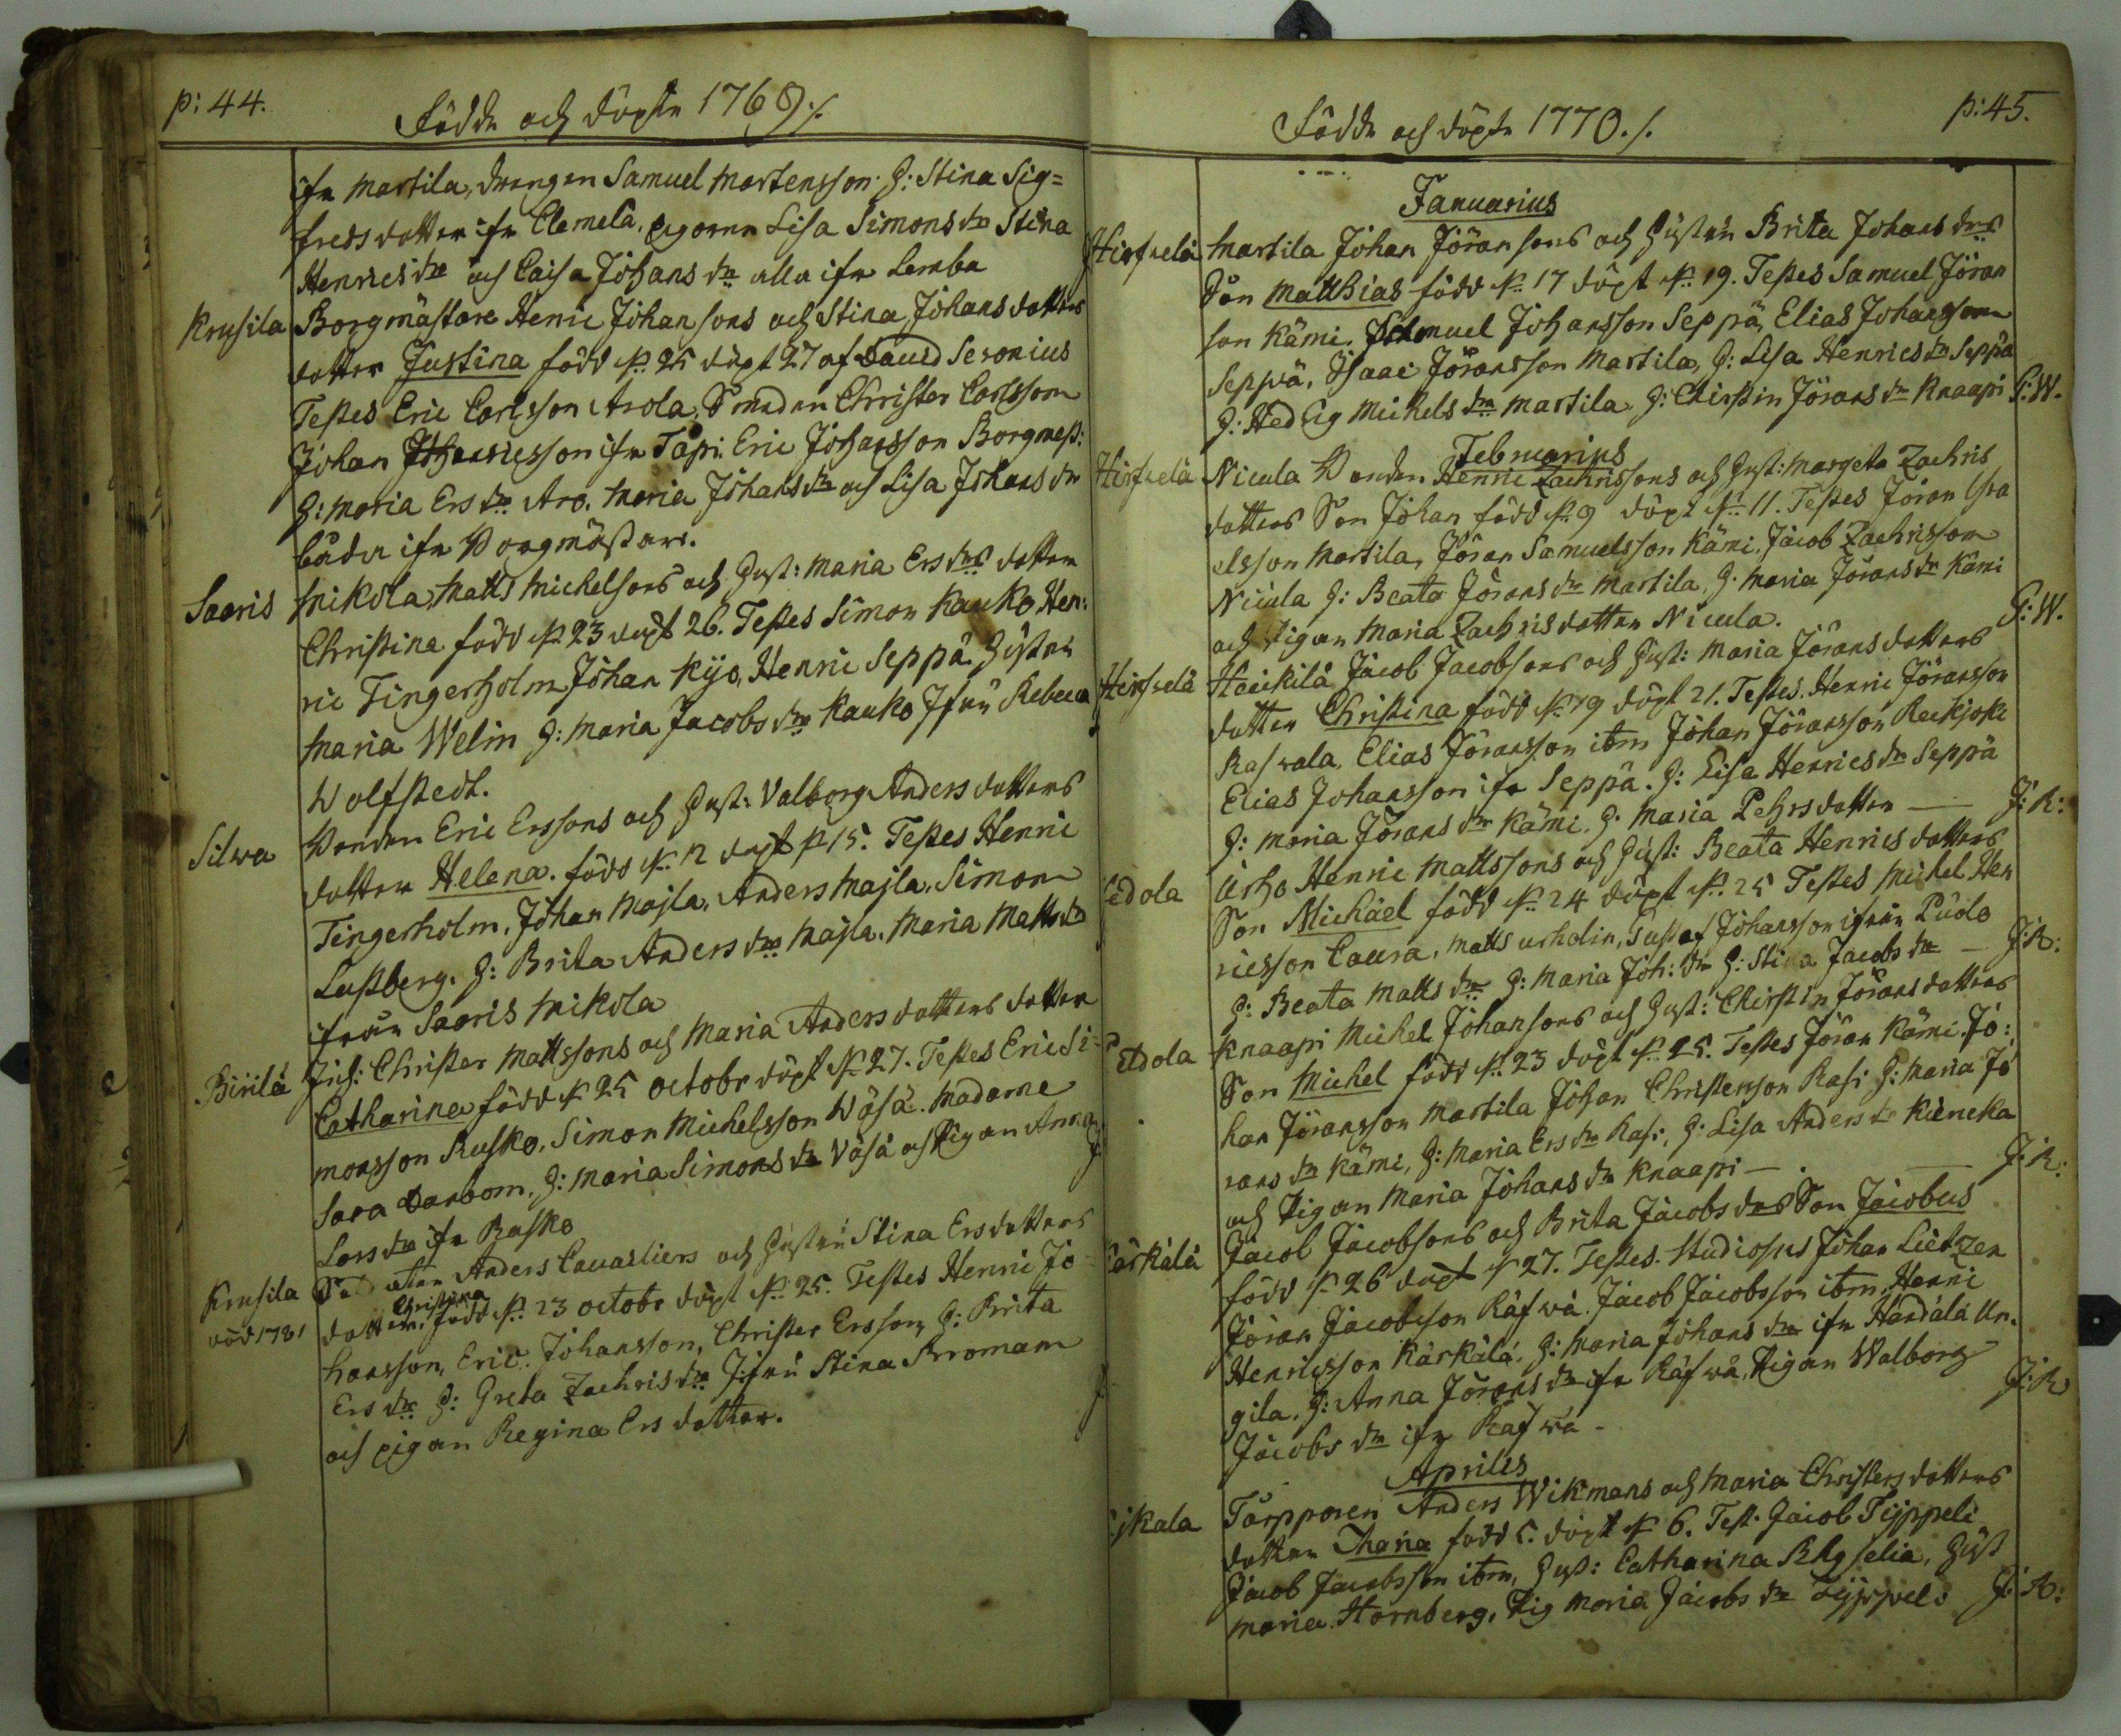 p: 44.
Födde och döpte 1769 ./.
ifr Martila, drengen Samuel Mårtensson. H: Stina Sig=
fredsdotter ifr Clemelä, pigorne Lisa Simons dr Stina
Henrics dr och Caisa Johans dr alla ifr Lemba
Krusila Borgmästare Henric Johansons och Stina Johans dotters
dotter Justina född d. 25 döpt 27 af David Seronius
Testes Eric Carlsson Arola, Smeden Christer Carlsson
Johan Henricsson ifr Tapi. Eric Johansson Borgmest:
H: Maria Ers dr Aro. Maria Johans dr och Lisa Johans dr
båda ifr Borgmästars.
Saaris Mikola, Matts Michelsons och Hust: Maria Ers drs dotter
Christina född d. 23 döpt 26. Testes Simon Kauko, Hen:
ric Tingerholm, Johan Kyö, Henric Seppä. Hustru
Maria Welin H: Maria Jacobs dr Kauko Jfru Rebecca
Wolfstedt.
Silwa Bonden Eric Erssons och Hust: Valborg Anders dotters
dotter Helena. född d. 12 döpt d 15. Testes Henric
Tingerholm, Johan Majla, Anders Majla, Simon
Lustberg. H: Brita Anders dr Majla. Maria Matts dr
ifrån Saaris Mikola
Birilä Inh: Christer Mattssons och Maria Anders dotters dotter
Catharina född d. 25 octobr döpt d. 27. Testes Eric Si=
monsson Rusko, Simon Michelsson Wäsä. Madame
Sara Danbom, H: Maria Simons dr Väsä och Pigan Anna
Lars dr ifr Rusko
Krusila Soldaten Anders Cavalliers och Hustru Stina Ers dotters
död 1781 dotter Christina född d. 23 octobr döpt d. 25. Testes Henric Jo=
hansson, Eric Johansson, Christer Ersson, H: Brita
Ers dr H: Greta Zachris dr Jfru Stina Broman
och pigan Regina Ers dotter.
Födde och döpte 1770 ./.
p: 45.
Januarius
Hirfvelä Martila Johan Jöransons och Hustru Brita Johans drs
Son Matthias född d. 17 döpt d. 19. Testes Samuel Jöran
son Kämi. Samuel Johansson Seppä, Elias Johansson
Seppä, Isaac Jöransson Martila, H: Lisa Henrics dr Seppä
H: Hedvig Michels dr Martila H: Chirstin Jörans dr Knaapi G: W.
Februarius
Hirfvelä Nicula Bonden Henric Zachrissons och Hust: Margeta Zachris
dotters Son Johan född d. 9 döpt d. 11. Testes Jöran Isra
elsson Martila, Jöran Samuelsson Kämi, Jacob Zachrisson
Nicula H: Beata Jörans dr Martila, H. Maria Jörans dr Kämi
och Pigan Maria Zachrisdotter Nicula. G: W.
Hirfvelä Haikilä Jacob Jacobsons och Hust: Maria Jörans dotters
dotter Christina född d. 19 döpt 21. Testes. Henric Jöransson
Rasvala, Elias Jöransson ibm Johan Jöransson Reckjoki
Elias Johansson ifr Seppä. H: Lisa Henrics dr Seppä
H: Maria Jörans dr Kämi. H. Maria Pehrsdotter — J: R:
Cedola Urho Henric Mattssons och Hust: Beata Henrics dotters
Son Michäel född d. 24 döpt d. 25 Testes Michel Hen
ricsson Caura, Matts Urholin, Gustaf Johansson ifrån Pudo
H: Beata Matts dr H: Maria Joh: dr H: Stina Jacobs dr — J: R:
Cedola Knaapi Michel Johansons och Hust: Chirstin Jörans dotters
Son Michel född d. 23 döpt d. 25. Testes Jöran Kämi. Jo:
han Jöransson Martila Johan Christersson Rasi H: Maria Jö
rans dr Kämi, H: Maria Ers dr Rasi, H: Lisa Anders dr Kieneka
och Pigan Maria Johans dr Knaapi — J: R:
Kärkälä Jacob Jacobsons och Brita Jacobs drs Son Jacobus
född d. 26 döpt d 27. Testes. Studiosus Johan Lietzen
Jöran Jacobsson Räfwä. Jacob Jacobsson ibm, Henric
Henricsson Kärkälä, H: Maria Johans dr ifr Handälä Un.
gila, H: Anna Jörans dr ifr Räfwä, Pigan Walborg
Jacobs dr ifr Räfwä - J: R
Aprilis
kala Torpparen Anders Wikmans och Maria Christersdotters
dotter Maria född 5. döpt d 6. Test. Jacob Typpeli
Jacob Jacobsson ibm, Hust: Catharina Rhyselia, Hust
Maria Hornberg, Pig Maria Jacobs dr Tyyppeli J: R: